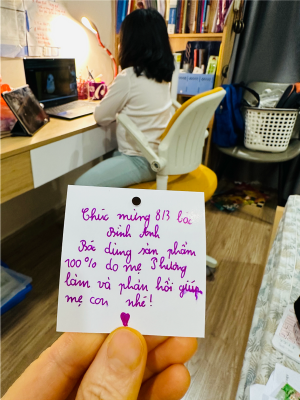 Chúc mừng 8/3 bác
Bình Anh
Bác dùng sản phẩm
100% do mẹ Phương
làm và phản hồi giúp
mẹ con nhé!